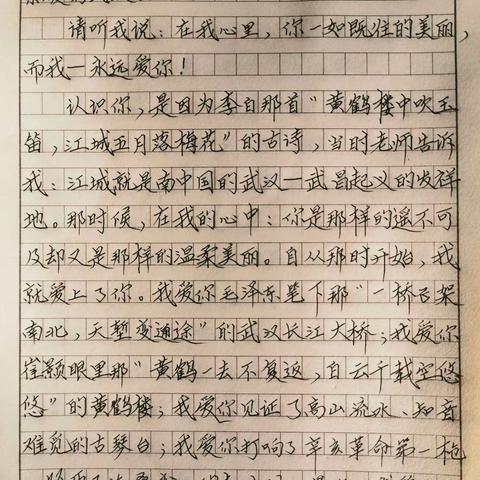 请听我说：在我心里，你一如既往的美丽，
而我一永远爱你！
认识你，是因为李白那首"黄鹤楼中吹玉
笛，江城五月落梅花"的古诗，当时老师告诉
我：江城就是南中国的武汉一武昌起义的发祥
地。那时候，在我的心中：你是那样的遥不可
及却又是那样的温柔美丽。自从那时开始，我
就爱上了你。我爱你毛泽东笔下那"一桥飞架
南北，天堑变通途"的武汉长江大桥；我爱你
崔颢眼里那"黄鹤一去不复返，白云千载空悠
悠"的黄鹤楼；我爱你见证了高山流水、知音
难觅的古琴台；我爱你打响了辛亥革命第一枪